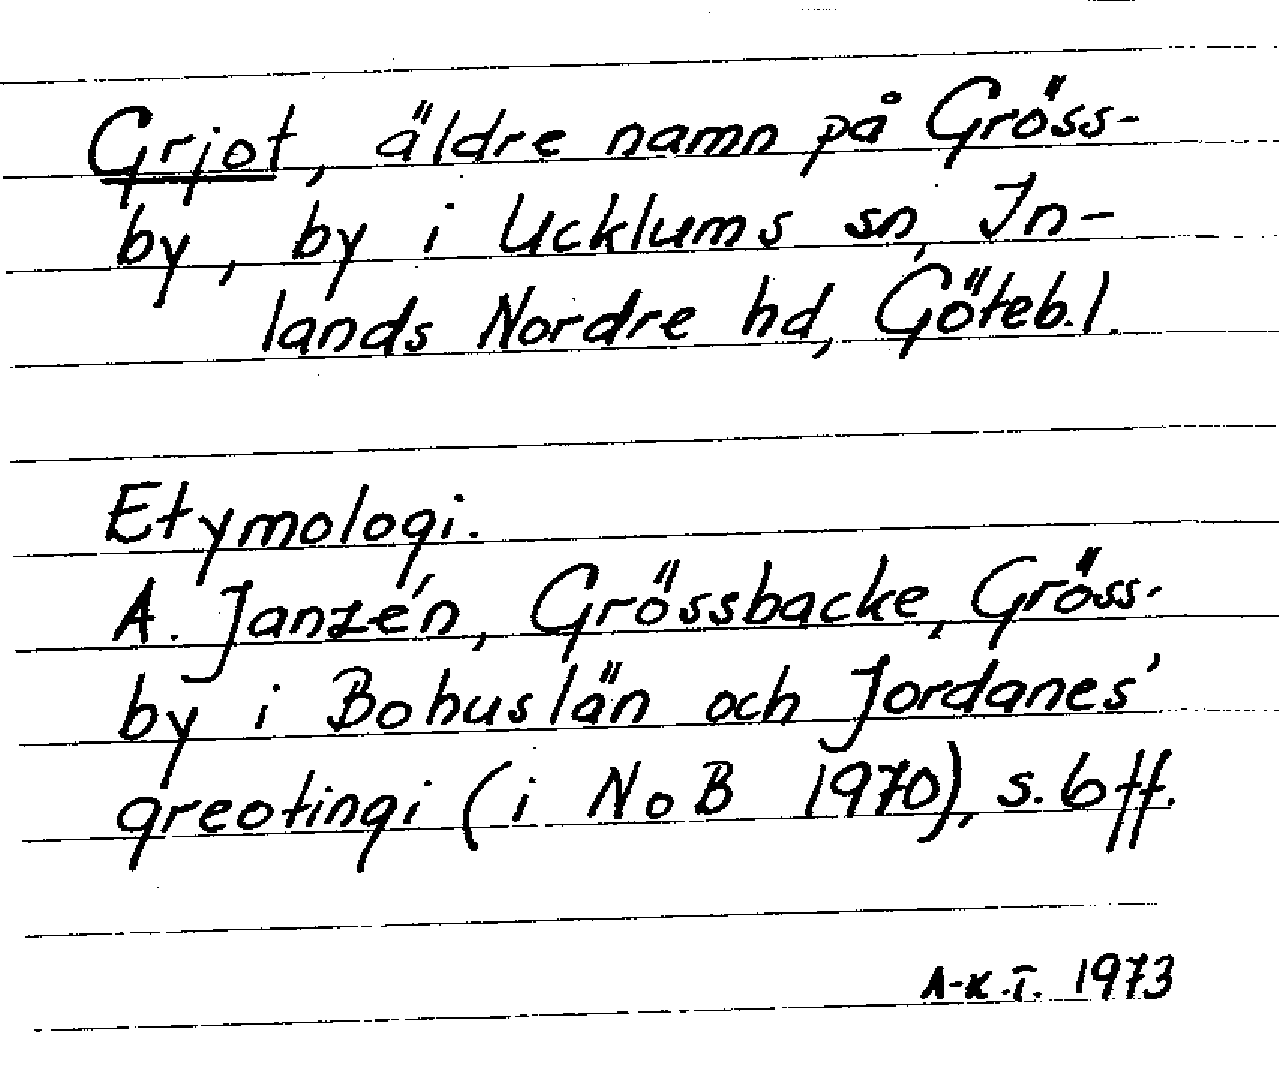 Grjot, äldre namn på Gröss-
by, by i Ucklums sn, In-
lands Nordre hd, Göteb.l.
Etymologi.
A. Janzén, Grössbacke, Gröss-
by i Bohuslän och Jordanes'
greotingi (i NoB 1970), s. 6 ff.
A-K.T. 1973